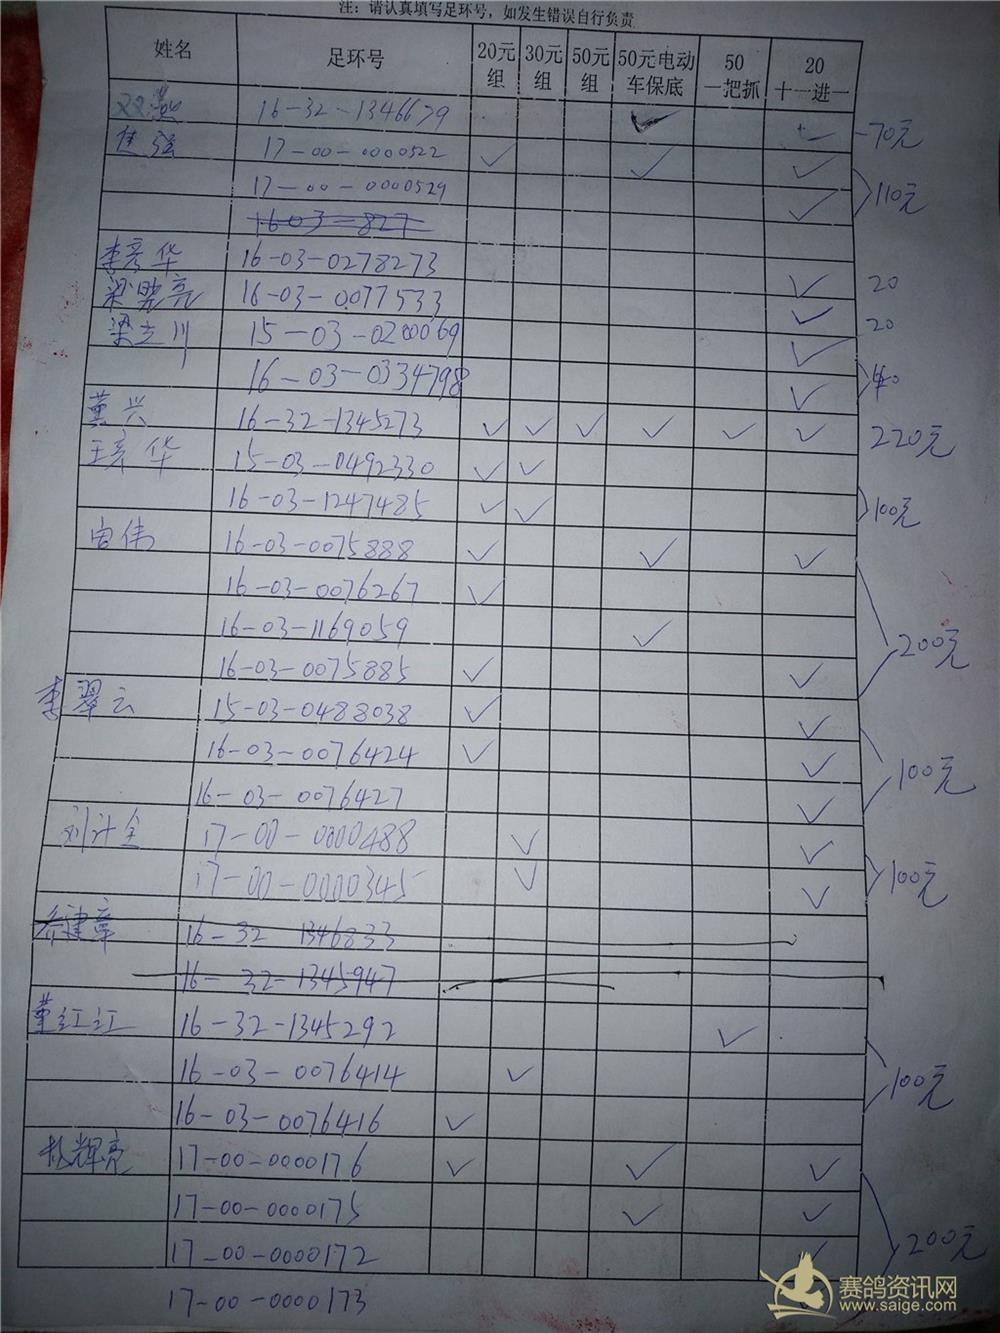 注: 请认真填写足环号，如发生错误自行负责
姓名 足环号 20元组 30元组 50元组 50元电动车保底 50一把抓 20十一进一
16-32-1346679 ✓ ✓ -70元
17-00-0000522 ✓ ✓ ✓
17-00-0000529 ✓ 110元
1603-827
李彦华 16-03-0278273 ✓ 20
梁晓亮 16-03-0077533 ✓ 20
梁立川 15-03-0200069 ✓
16-03-0334798 ✓ 40
董兴 16-32-1345273 ✓ ✓ ✓ ✓ ✓ ✓ 220元
王彦华 15-03-0492330 ✓ ✓
16-03-1247485 ✓ ✓ 100元
伟 16-03-0075888 ✓ ✓ ✓
16-03-0076267 ✓
16-03-1169059 ✓ 200元
16-03-0075885 ✓ ✓
李翠云 15-03-0488038 ✓ ✓
16-03-0076424 ✓ ✓ 100元
16-03-0076427 ✓
刘计全 17-00-0000488 ✓ ✓
17-00-0000345 ✓ ✓ 100元
乔建章 16-32 1346833
16-32-1345947
董红江 16-32-1345292 ✓
16-03-0076414 ✓ 100元
16-03-0076416 ✓
辉亮 17-00-0000176 ✓ ✓ ✓
17-00-0000175 ✓ ✓
17-00-0000172 ✓ 200元
17-00-0000173
赛鸽资讯网
www.saige.com